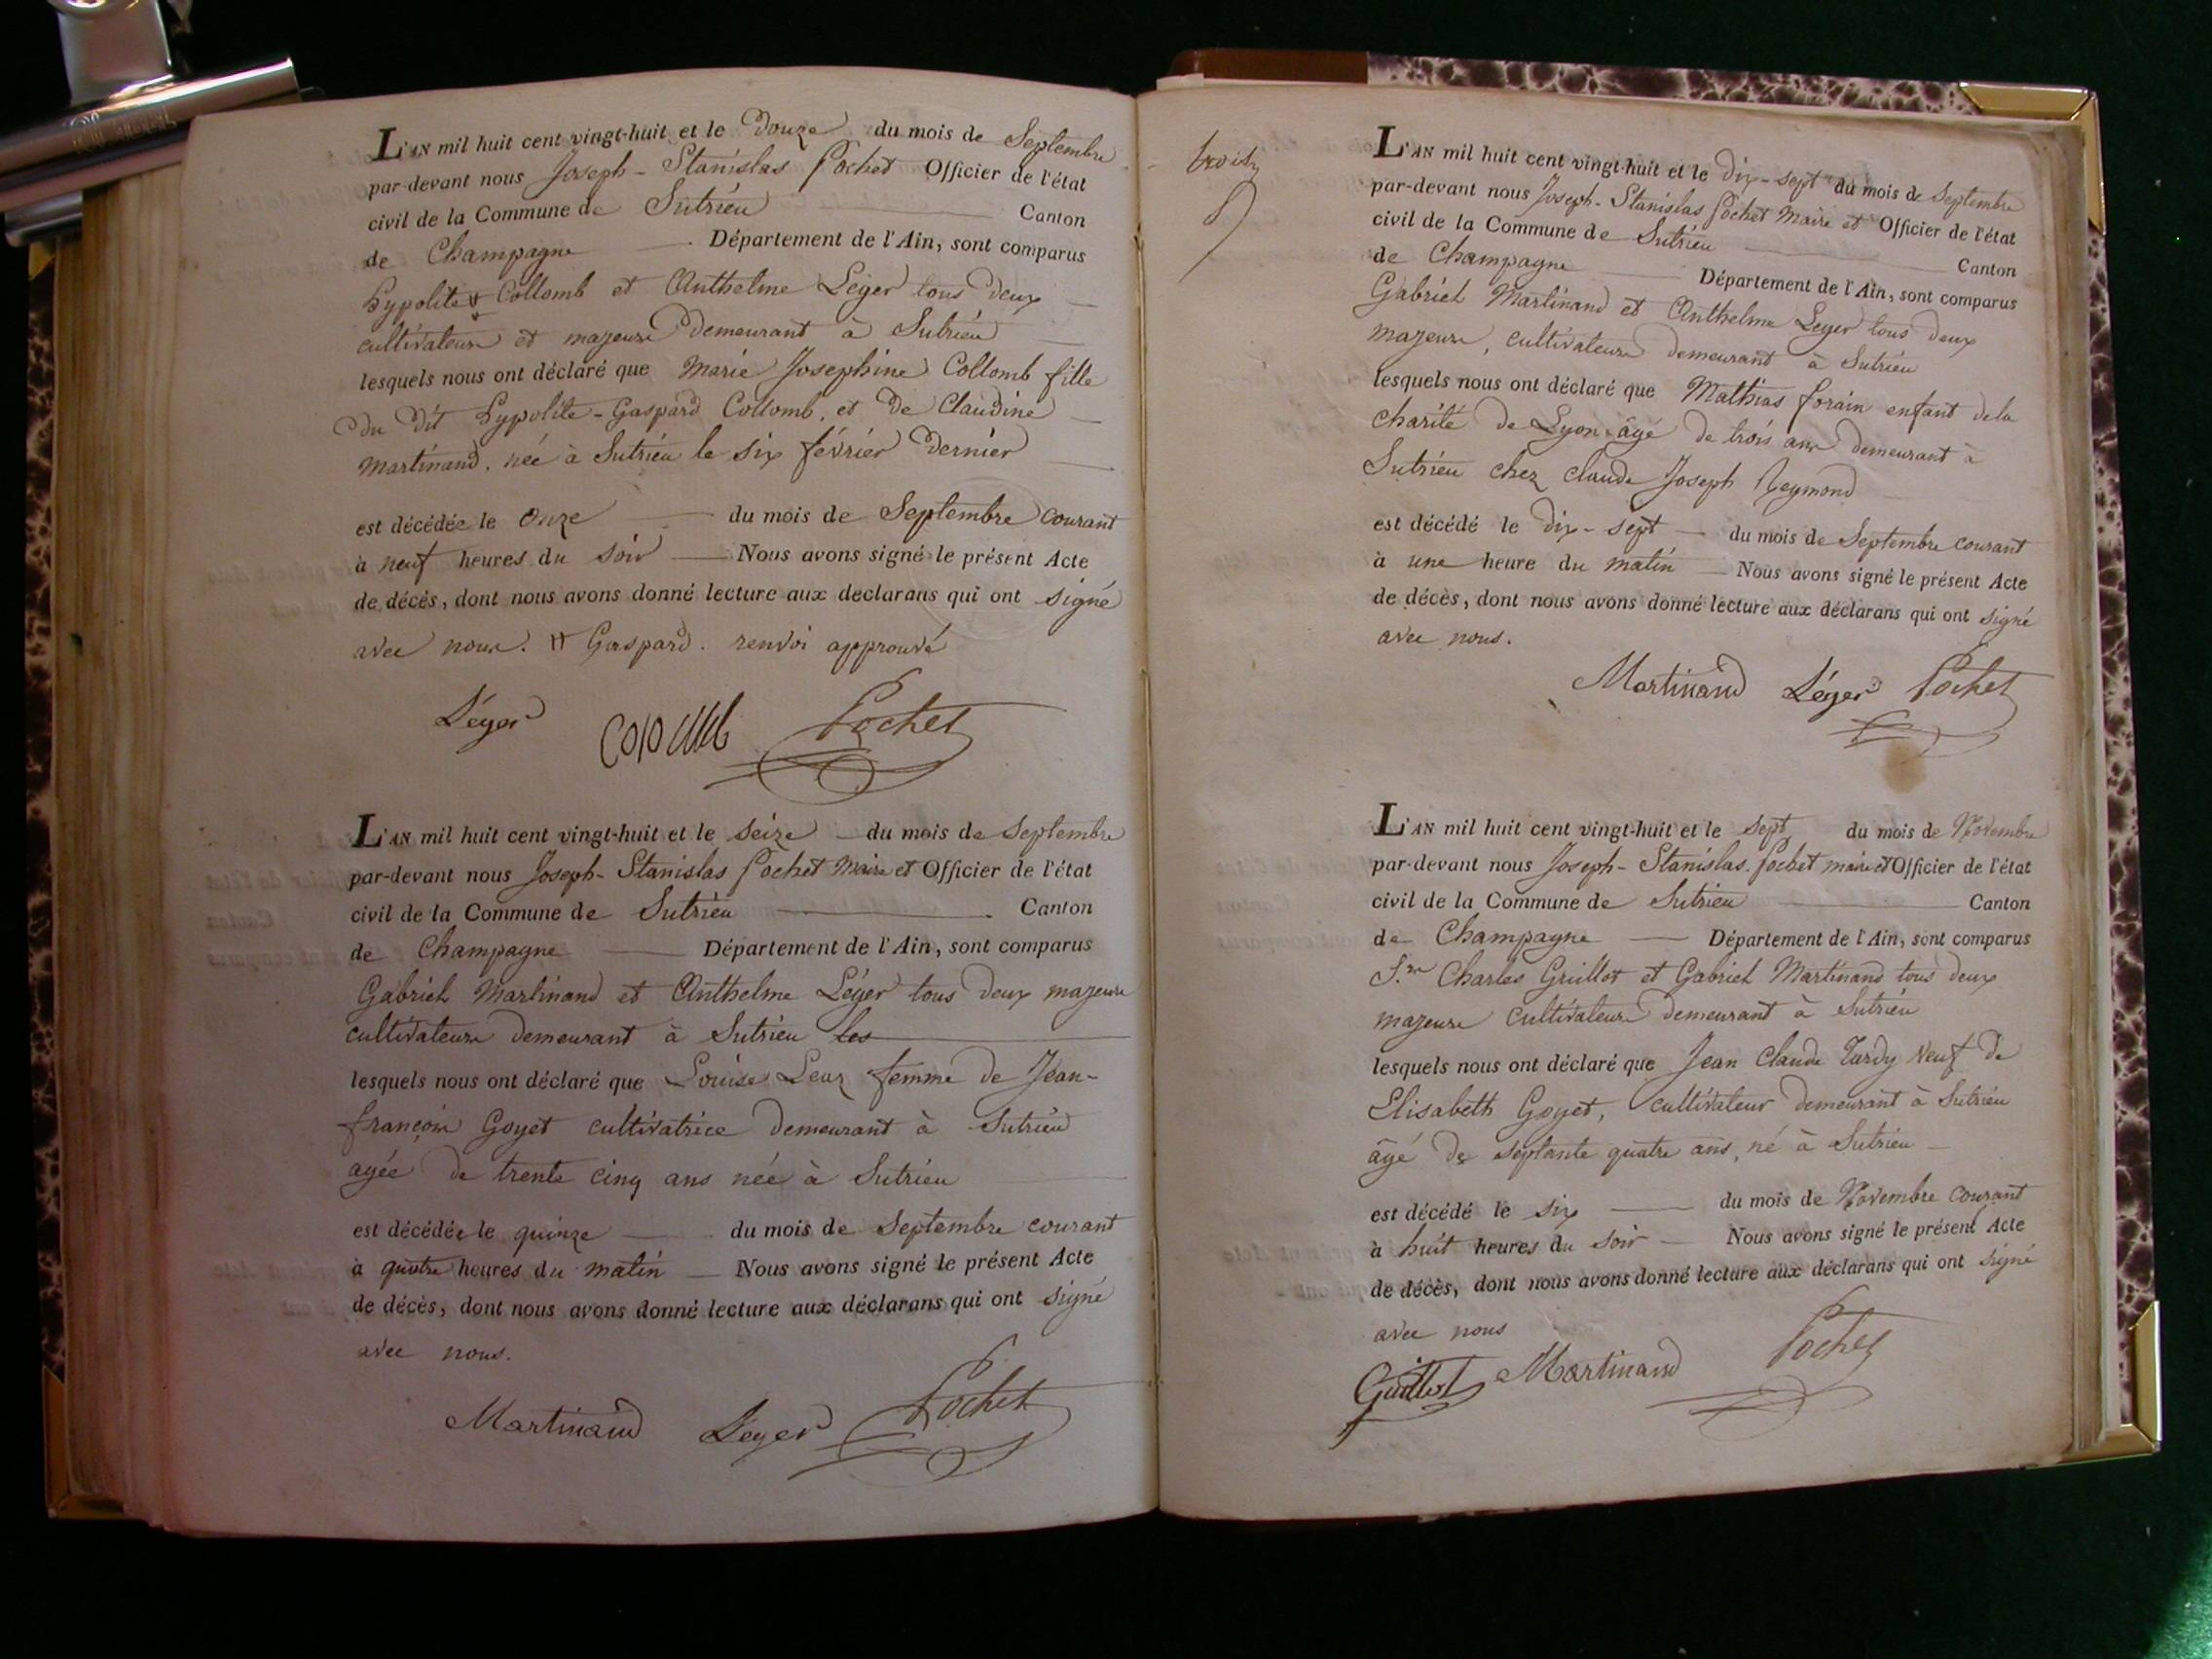 L'AN mil huit cent vingt-huit et le douze du mois de Septembre
par-devant nous Joseph-Stanislas Pochet Officier de l'état
civil de la Commune de Sutrieu Canton
de Champagne Département de l'Ain, sont comparus
hypolite Collomb et Anthelme Léger tous deux
cultivateurs et majeurs demeurant à Sutrieu
lesquels nous ont déclaré que Marie Josephine Collomb fille
du dit hypolite-Gaspard Collomb, et de Claudine
Martinand, née à Sutrieu le six février dernier
est décédée le onze du mois de Septembre courant
à neuf heures du soir Nous avons signé le présent Acte
de décès, dont nous avons donné lecture aux déclarans qui ont signé
avec nous. Gaspard. renvoi approuvé
Léger Pochet
L'AN mil huit cent vingt-huit et le seize du mois de Septembre
par-devant nous Joseph-Stanislas Pochet Maire et Officier de l'état
civil de la Commune de Sutrieu Canton
de Champagne Département de l'Ain, sont comparus
Gabriel Martinand et Anthelme Léger tous deux majeurs
cultivateurs demeurant à Sutrieu les
lesquels nous ont déclaré que Louise femme de Jean-
françois Goyet cultivatrice demeurant à Sutrieu
agée de trente cinq ans née à Sutrieu
est décédée le quinze du mois de Septembre courant
à quatre heures du matin Nous avons signé le présent Acte
de décès, dont nous avons donné lecture aux déclarans qui ont signé
avec nous.
Martinand Léger Pochet
L'AN mil huit cent vingt-huit et le dix-sept du mois de Septembre
par-devant nous Joseph-Stanislas Pochet Maire et Officier de l'état
civil de la Commune de Sutrieu Canton
de Champagne Département de l'Ain, sont comparus
Gabriel Martinand et Anthelme Leger tous deux
majeurs, cultivateurs demeurant à Sutrieu
lesquels nous ont déclaré que Mathias forain enfant de la
charité de Lyon âgé de trois ans demeurant à
Sutrieu chez claude Joseph Reymond
est décédé le dix-sept du mois de Septembre courant
à une heure du matin Nous avons signé le présent Acte
de décès, dont nous avons donné lecture aux déclarans qui ont signé
avec nous.
Martinand Léger Pochet
L'AN mil huit cent vingt-huit et le sept du mois de Novembre
par-devant nous Joseph-Stanislas Pochet maire et Officier de l'état
civil de la Commune de Sutrieu Canton
de Champagne Département de l'Ain, sont comparus
Charles Guillot et Gabriel Martinand tous deux
majeurs cultivateurs demeurant à Sutrieu
lesquels nous ont déclaré que Jean Claude Tardy veuf de
Elisabeth Goyet, cultivateur demeurant à Sutrieu
âgé de septante quatre ans, né à Sutrieu
est décédé le six du mois de Novembre courant
à huit heures du soir Nous avons signé le présent Acte
de décès, dont nous avons donné lecture aux déclarans qui ont signé
avec nous
Guillot Martinand Pochet